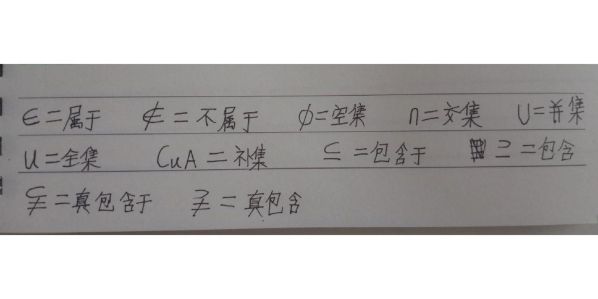 ∈=属于 ∉=不属于 ϕ=空集 ∩=交集 ∪=并集
U=全集 CuA=补集 ⊆=包含于 ⊇=包含
⊊=真包含于 ⊋=真包含